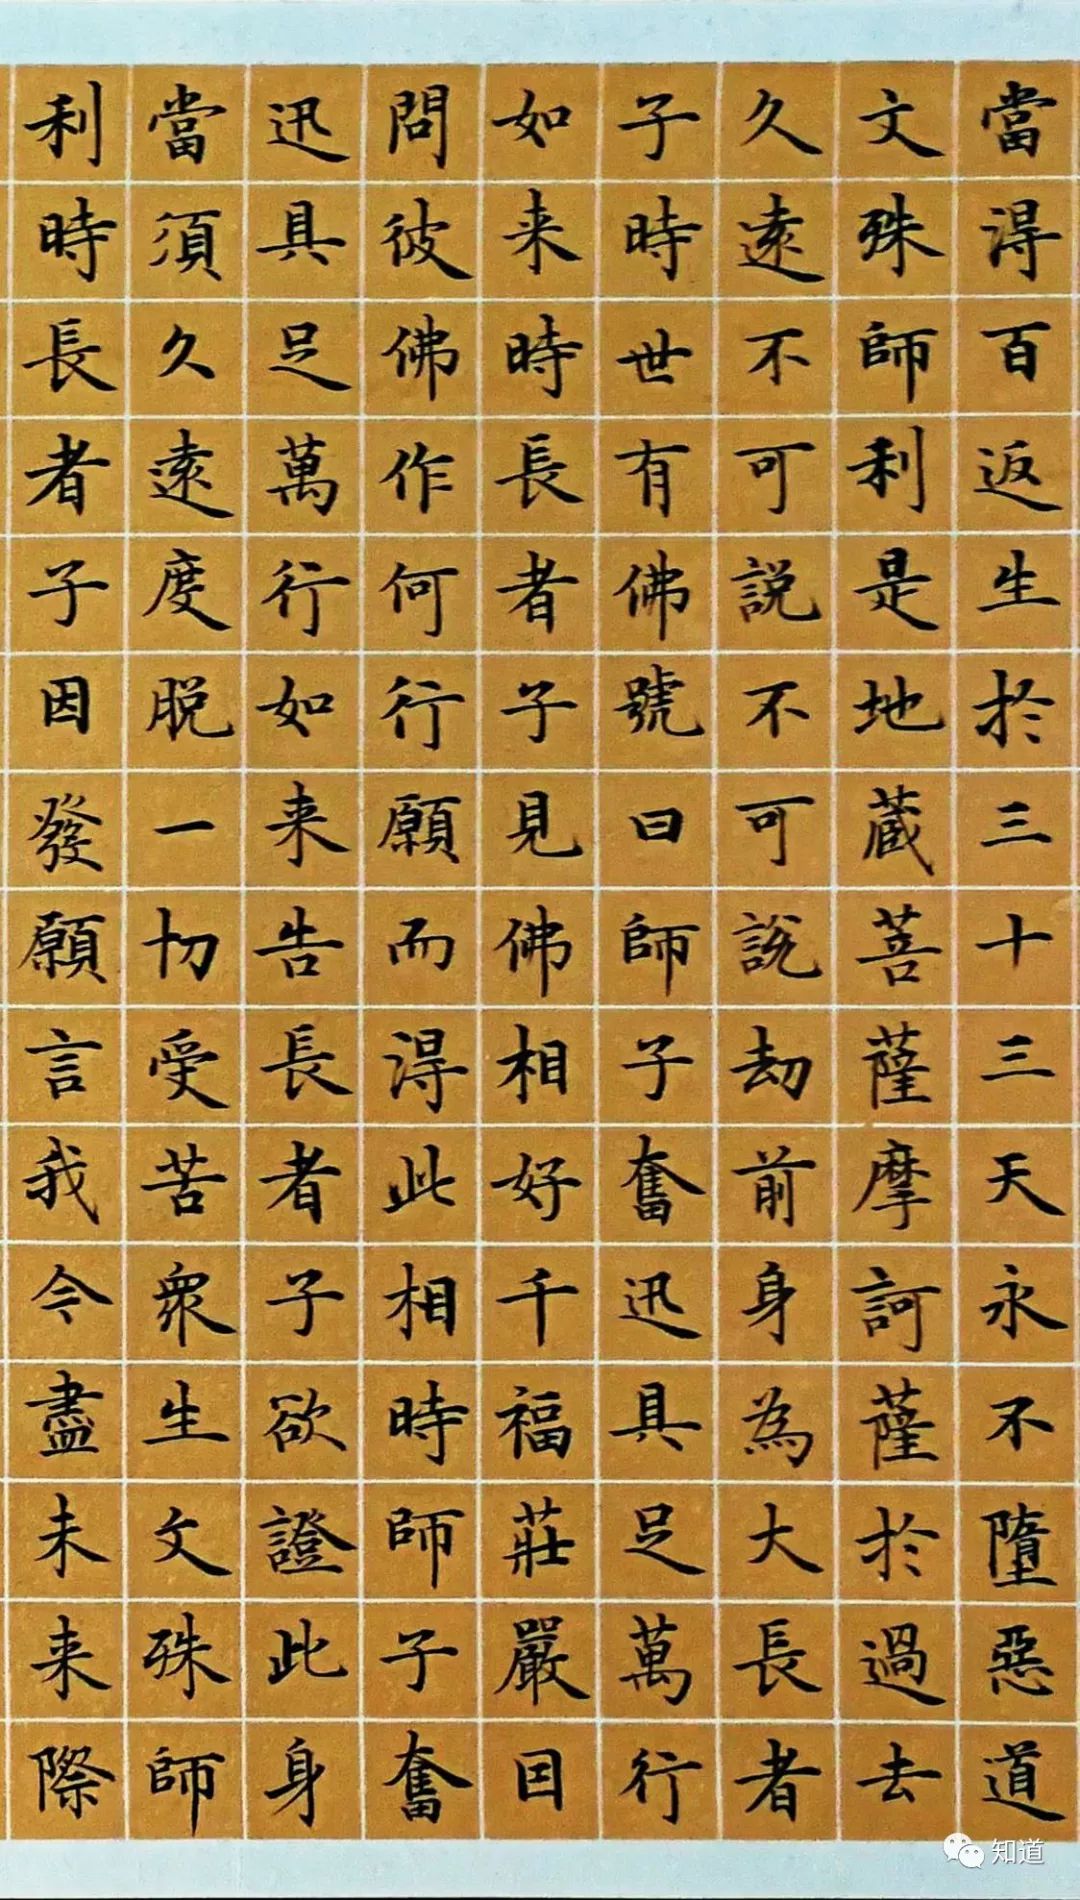 當得百返生於三十三天永不墮惡道
文殊師利是地蔵菩薩摩訶薩於過去
久遠不可說不可說劫前身為大長者
子時世有佛號曰師子奮迅具足萬行
如来時長者子見佛相好千福莊嚴因
問彼佛作何行願而得此相時師子奮
迅具足萬行如来告長者子欲證此身
當須久遠度脱一切受苦眾生文殊師
利時長者子因發願言我今盡未来際
知道